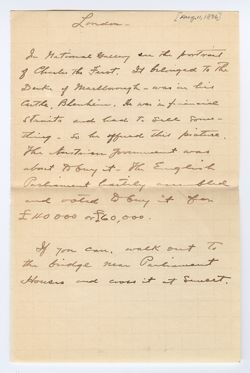 London -
[Aug. 11, 1896]
In National Gallery see the portrait
of Charles the First. It belonged to the
Duke of Marlborough - was in his
Castle, Blenheim. He was in financial
straits and had to sell some-
thing - So he offered this picture.
The Austrian Government was
about to buy it - The English
Parliament hastily assembled
and voted to buy it for
£40 000 or 60,000.
If you can, walk out to
the bridge near Parliament
Houses and cross it at Sunset.